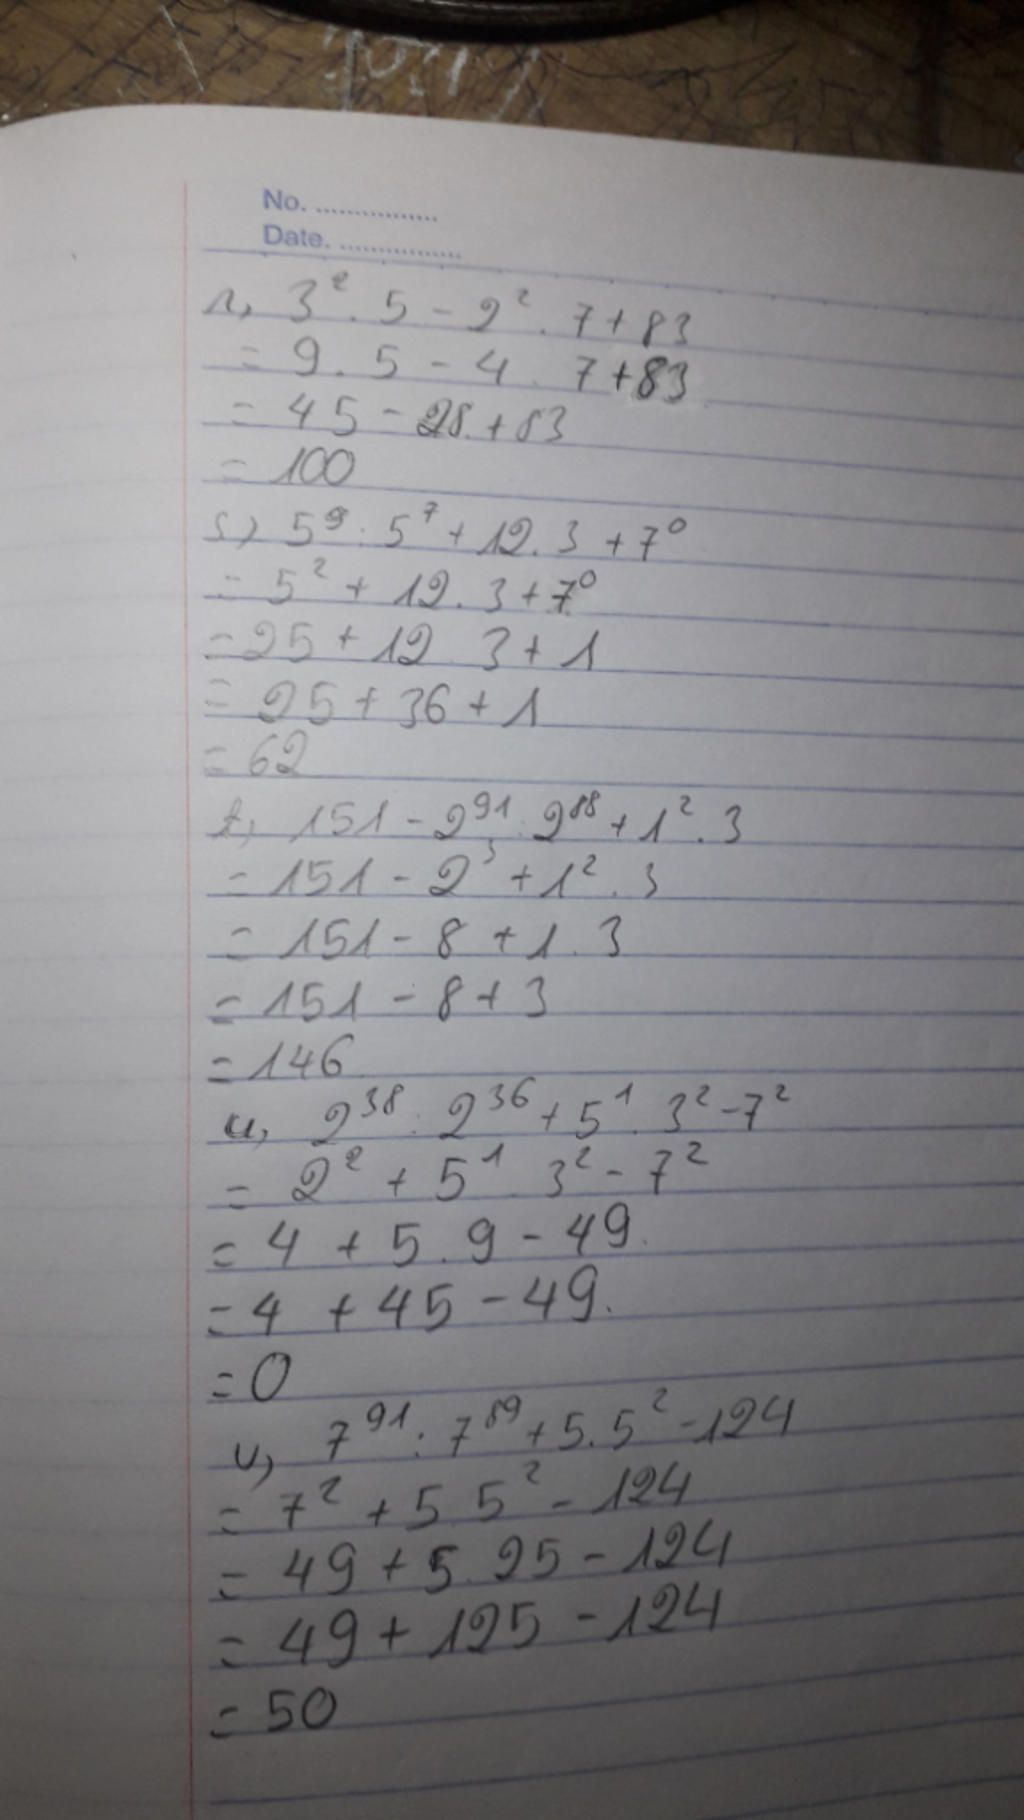 No. ................
Date. ................
r, 3² . 5 - 2² . 7 + 83
= 9 . 5 - 4 . 7 + 83
= 45 - 28 + 83
= 100
s) 5⁹ : 5⁷ + 12 . 3 + 7⁰
= 5² + 12 . 3 + 7⁰
= 25 + 12 . 3 + 1
= 25 + 36 + 1
= 62
t, 151 - 2⁹¹ : 2⁸⁸ + 1² . 3
= 151 - 2³ + 1² . 3
= 151 - 8 + 1 . 3
= 151 - 8 + 3
= 146
u, 2³⁸ : 2³⁶ + 5¹ . 3² - 7²
= 2² + 5¹ . 3² - 7²
= 4 + 5 . 9 - 49.
= 4 + 45 - 49.
= 0
v, 7⁹¹ : 7⁸⁹ + 5 . 5² - 124
= 7² + 5 . 5² - 124
= 49 + 5 . 25 - 124
= 49 + 125 - 124
= 50